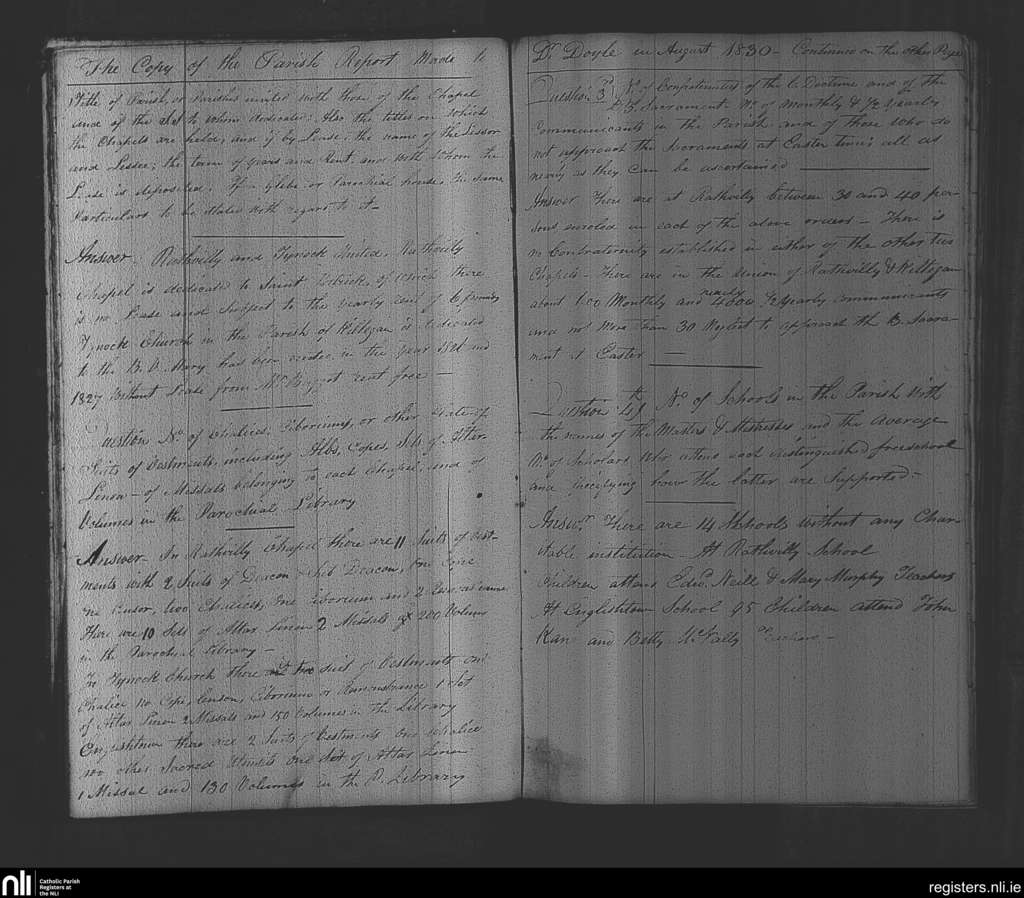 The Copy of the Parish Report Made to
Title of Parish, or Parishes united with those of the Chapel
and of the St to whom dedicated; Also the titles on which
the Chapels are held, and if by Lease, the name of the Lessor
and Lessee, the term of years and Rent, and with whom the
Lease is deposited. If a Glebe or Parochial house, the same
Particulars to be stated with regard to it—
Answer. Rathvilly and Tynock United, Rathvilly
Chapel is dedicated to Saint Patrick, of which there
is no Lease and subject to the yearly cent of 6
Tynock Church in the Parish of Kiltegan is dedicated
to the B. V. Mary had been erected in the year and
1827 Without Lease from Mr rent free —
Question No. of Chalices, Ciboriums, or other
Suits of Vestments, including Albs, Copes, Sets of Altar
Linen — of Missals belonging to each Chapel, and of
Volumes in the Parochial Library
Answer— In Rathvilly Chapel there are 11 Suits of Vest-
ments with 2 Suits of Deacon & Sub Deacon, One Cope
One Censor, two Chalices, One Ciborium and 2
There are 10 Sets of Altar Linen 2 Missals & 200 Volums
in the Parochial Library—
In Tynock Church there suit of Vestments one
Chalice no Cope, Censor, Ciborium or Remonstrance 1 Set
of Altar Linen 2 Missals and 150 Volumes in the Library
Englishtown there are 2 Suits of Vestments One Chalice
no other Sacred One Set of Altar Linen
1 Missal and 130 Volumes in the P. Library
Dr. Doyle in August 1830— Continued on the other Page
Question 3d No. of Confraternities of the C. Doctrine and of the
B. Sacrament No. of Monthly & ½ yearly
Communicants in the Parish and of those who do
not approach the Sacraments at Easter time; all as
nearly as they can be ascertained
Answer There are at Rathvilly between 30 and 40 per-
sons enroled in each of the above orders — There is
no Confraternity established in either of the other two
Chapels— There are in the union of Rathvilly & Kiltegan
about 600 Monthly and nearly 4600 ½ yearly communicants
and not More than 30 Neglect to approach the B. Sacra-
ment at Easter —
Question 4th No. of Schools in the Parish With
the names of the Masters & Mistresses and the Average
No. of Scholars Who attend each distinguished free school
and specifying how the latter are Supported—
Answr. There are 14 Schools without any Char-
itable institution At Rathvilly School
Children attend Edwd. Neill & Mary Murphy Teachers
At Englishtown School 95 Children attend John
Kane and Betty McNally Teachers —
nli
Catholic Parish
Registers at
the NLI
registers.nli.ie